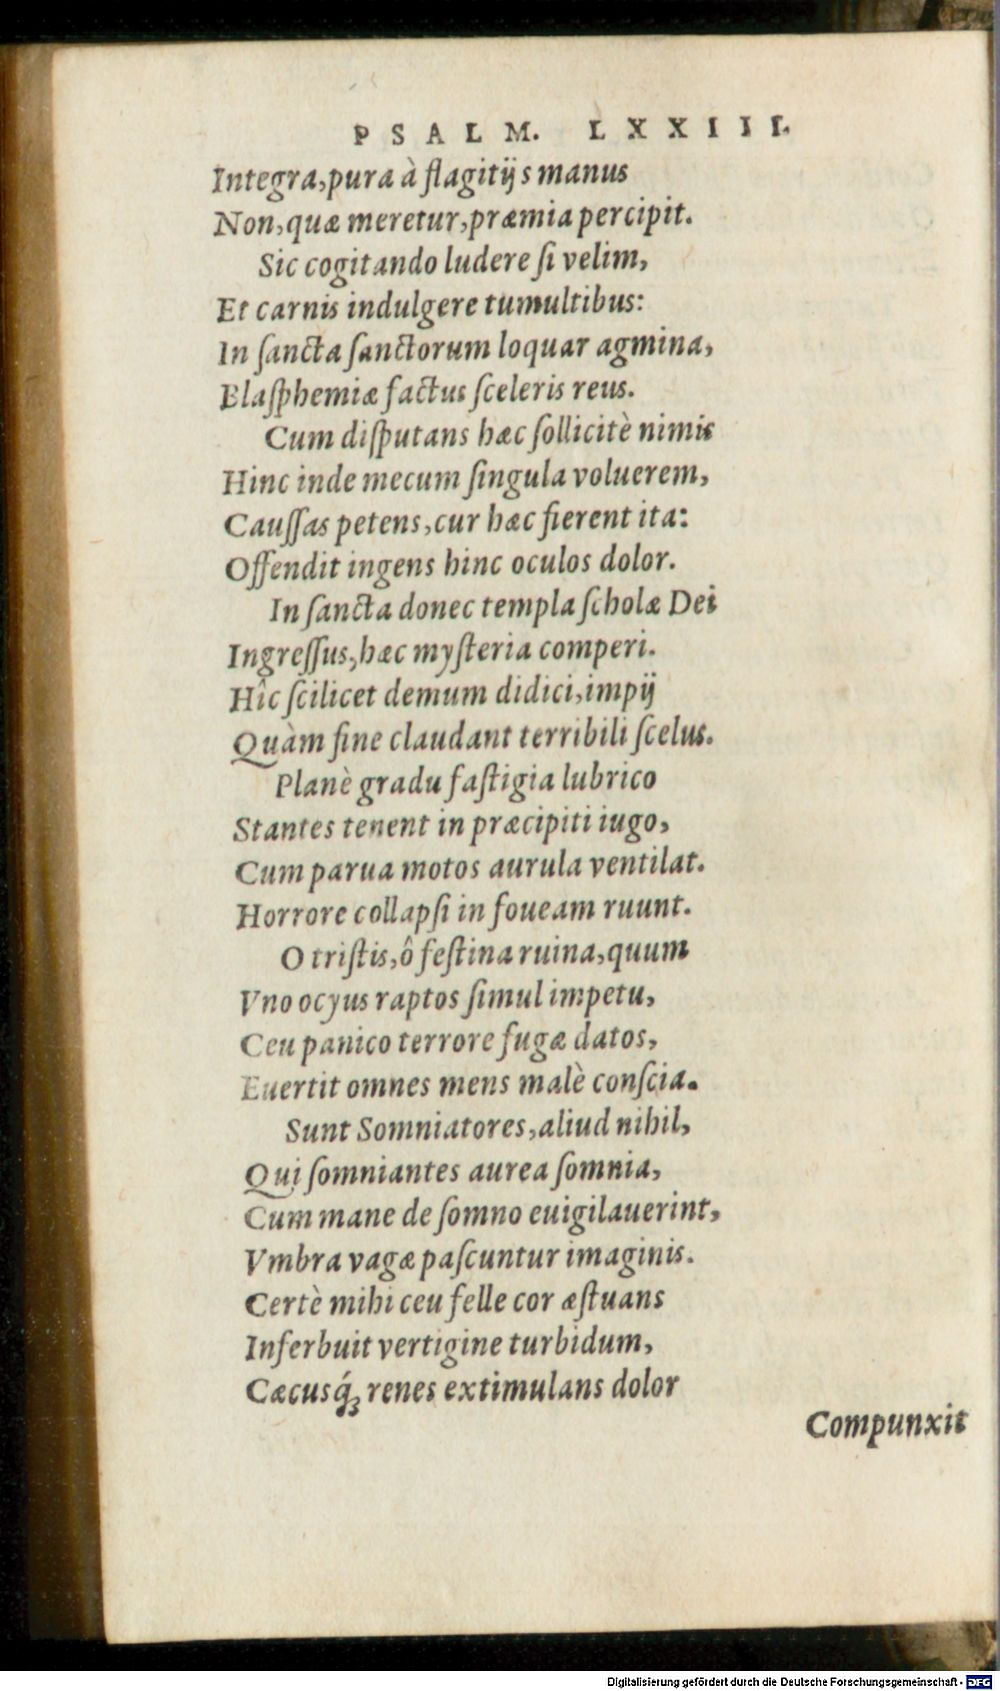 PSALM. LXXIII.
Integra, pura à flagitijs manus
Non, quæ meretur, præmia percipit.
Sic cogitando ludere ſi velim,
Et carnis indulgere tumultibus:
In ſancta ſanctorum loquar agmina,
Blaſphemiæ factus ſceleris reus.
Cum diſputans hæc ſollicitè nimis
Hinc inde mecum ſingula voluerem,
Cauſſas petens, cur hæc fierent ita:
Offendit ingens hinc oculos dolor.
In ſancta donec templa ſcholæ Dei
Ingreſſus, hæc myſteria comperi.
Hîc ſcilicet demum didici, impij
Quàm fine claudant terribili ſcelus.
Planè gradu faſtigia lubrico
Stantes tenent in præcipiti iugo,
Cum parua motos aurula ventilat.
Horrore collapſi in foueam ruunt.
O triſtis, ô feſtina ruina, quum
Vno ocyus raptos ſimul impetu,
Ceu panico terrore fugæ datos,
Euertit omnes mens malè conſcia.
Sunt Somniatores, aliud nihil,
Qui ſomniantes aurea ſomnia,
Cum mane de ſomno euigilauerint,
Vmbra vagæ paſcuntur imaginis.
Certè mihi ceu felle cor æſtuans
Inferbuit vertigine turbidum,
Cæcusq́ꝫ renes extimulans dolor
Compunxit
Digitalisierung gefördert durch die Deutsche Forschungsgemeinschaft - DFG